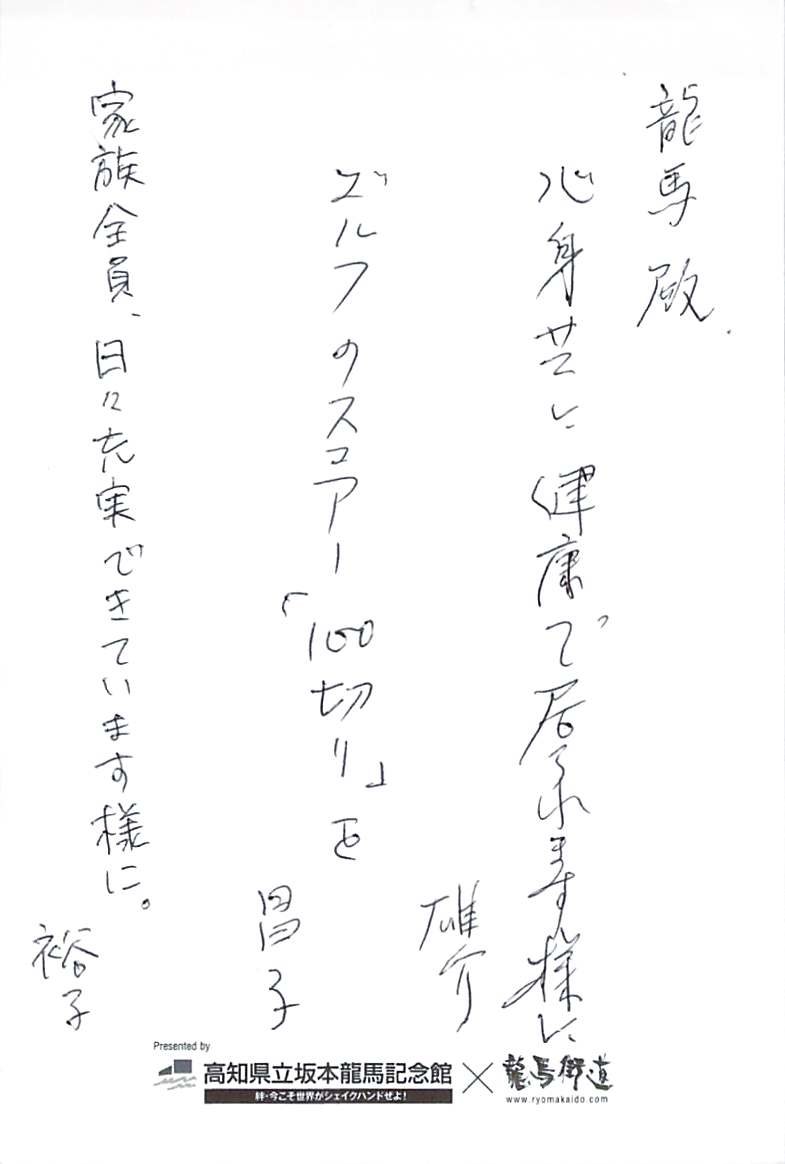 龍馬殿.
心身共に健康で居られます様に
雄介
ゴルフのスコアー「100切り」を
昌子
家族全員、日々充実できています様に。
裕子
Presented by
高知県立坂本龍馬記念館
絆・今こそ世界がシェイクハンドせよ！
×
龍馬街道
www.ryomakaido.com